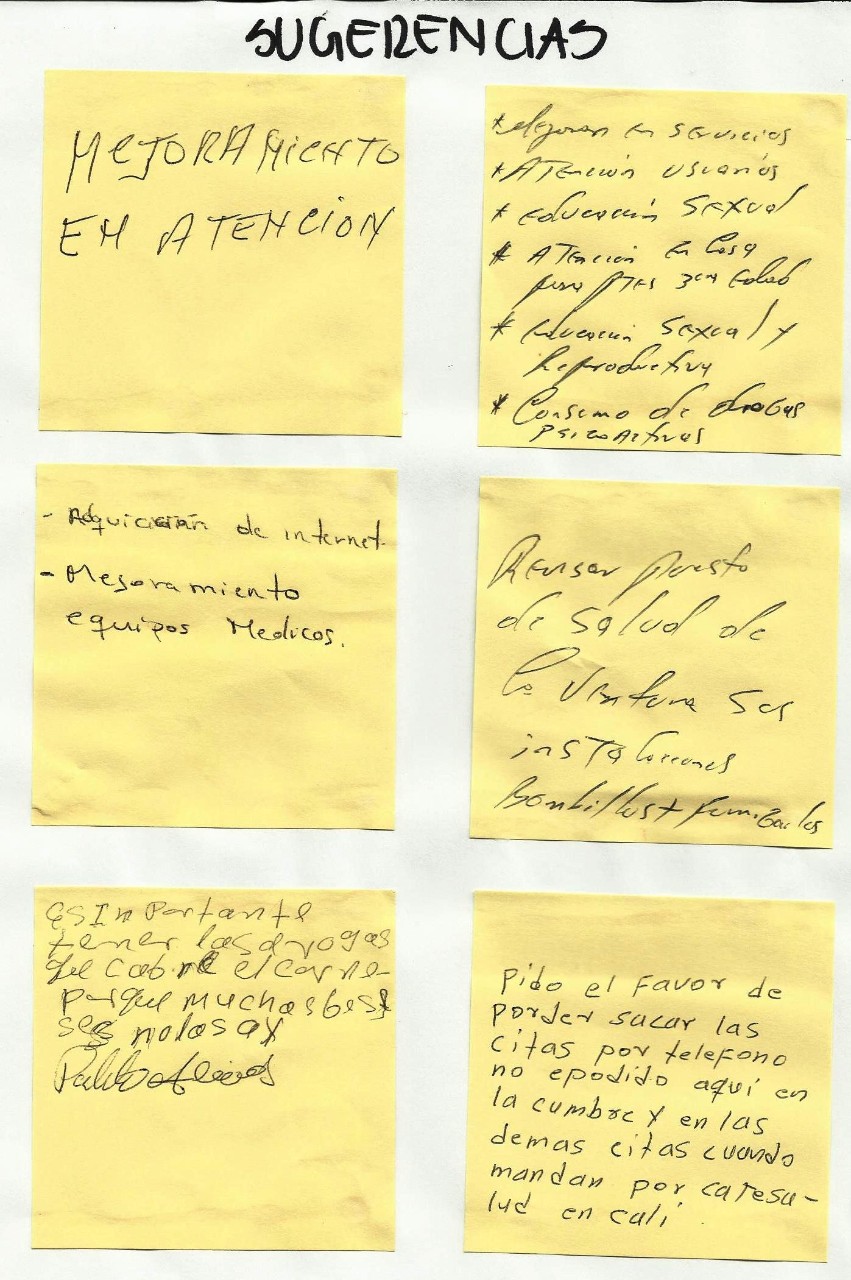 SUGERENCIAS
MEJORAMIENTO
EN ATENCION
* Mejoran en servicios
* ATención usuarios
* Educación Sexual
* ATención en Casa
para PTES 3era Edad
* Educación Sexual y
Reproductiva
* Consumo de drogas
PsicoActivas
- Adquicición de internet
- Mejoramiento
equipos Medicos.
Revisar puesto
de Salud de
la Ventura Sus
insTalaciones
Bombillos + Fumigarlos
es Importante
tener las drogas
que cobre el carne
porque muchas bess
no los ay
Pido el Favor de
porder sacar las
citas por telefono
no epodido aquí en
la cumbre y en las
demas citas cuando
mandan por cafesa-
lud en cali.